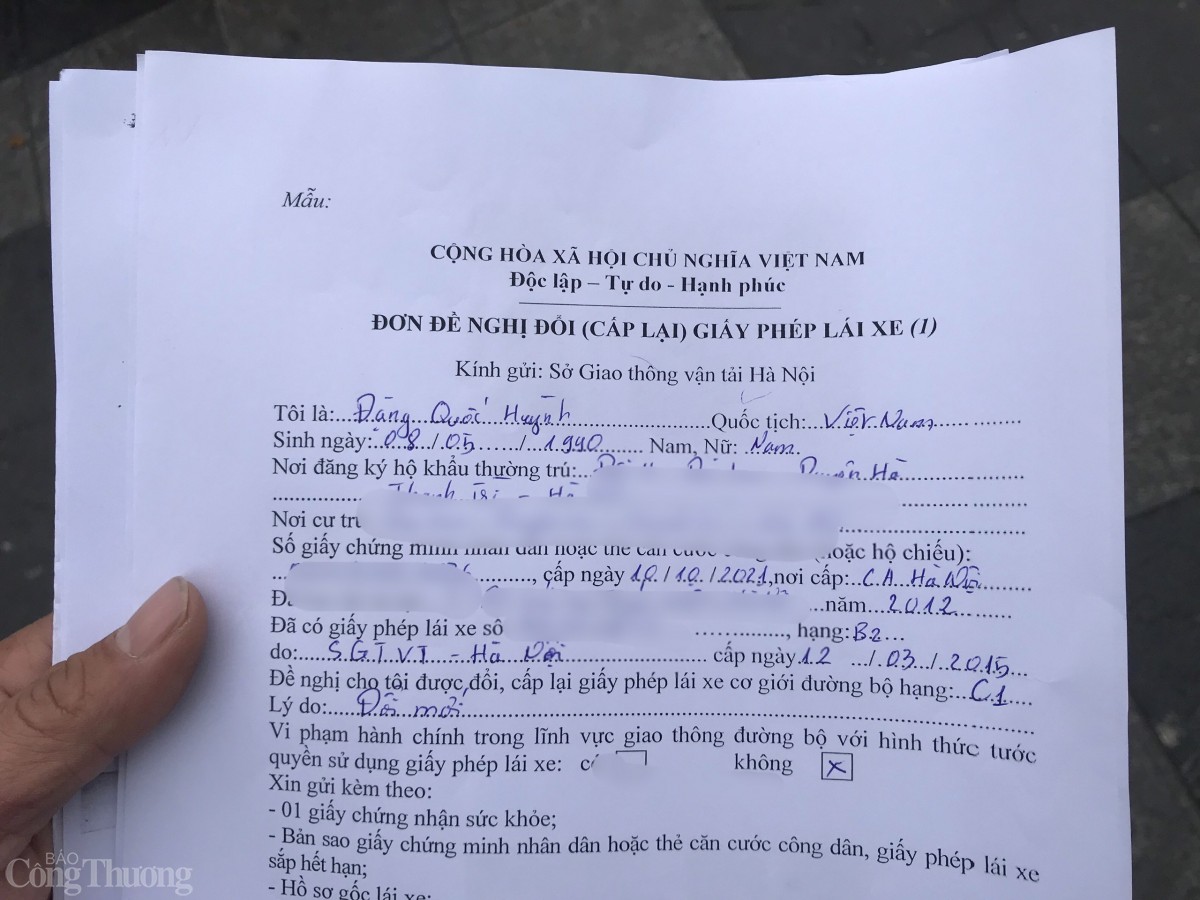 Mẫu:
CỘNG HÒA XÃ HỘI CHỦ NGHĨA VIỆT NAM
Độc lập – Tự do - Hạnh phúc
ĐƠN ĐỀ NGHỊ ĐỔI (CẤP LẠI) GIẤY PHÉP LÁI XE (1)
Kính gửi: Sở Giao thông vận tải Hà Nội
Tôi là:...Đặng Quốc Huỳnh...Quốc tịch:...Việt Nam...
Sinh ngày:...08.../05.../...1990... Nam, Nữ: Nam.
Nơi đăng ký hộ khẩu thường trú:... Hà
Thanh Trì - Hà
Nơi cư trú
Số giấy chứng minh nhân dân hoặc thẻ căn cước (hoặc hộ chiếu):
..., cấp ngày 10/10/2021, nơi cấp: C.A Hà Nội...
...năm...2012...
Đã có giấy phép lái xe số ..., hạng: B2...
do:...S.GTVT - Hà Nội... cấp ngày 12 .../.03../.2015...
Đề nghị cho tôi được đổi, cấp lại giấy phép lái xe cơ giới đường bộ hạng:...C1...
Lý do:...Đổi mới...
Vi phạm hành chính trong lĩnh vực giao thông đường bộ với hình thức tước
quyền sử dụng giấy phép lái xe: có không X
Xin gửi kèm theo:
- 01 giấy chứng nhận sức khỏe;
- Bản sao giấy chứng minh nhân dân hoặc thẻ căn cước công dân, giấy phép lái xe
sắp hết hạn;
- Hồ sơ gốc lái xe;
BÁO
Công Thương